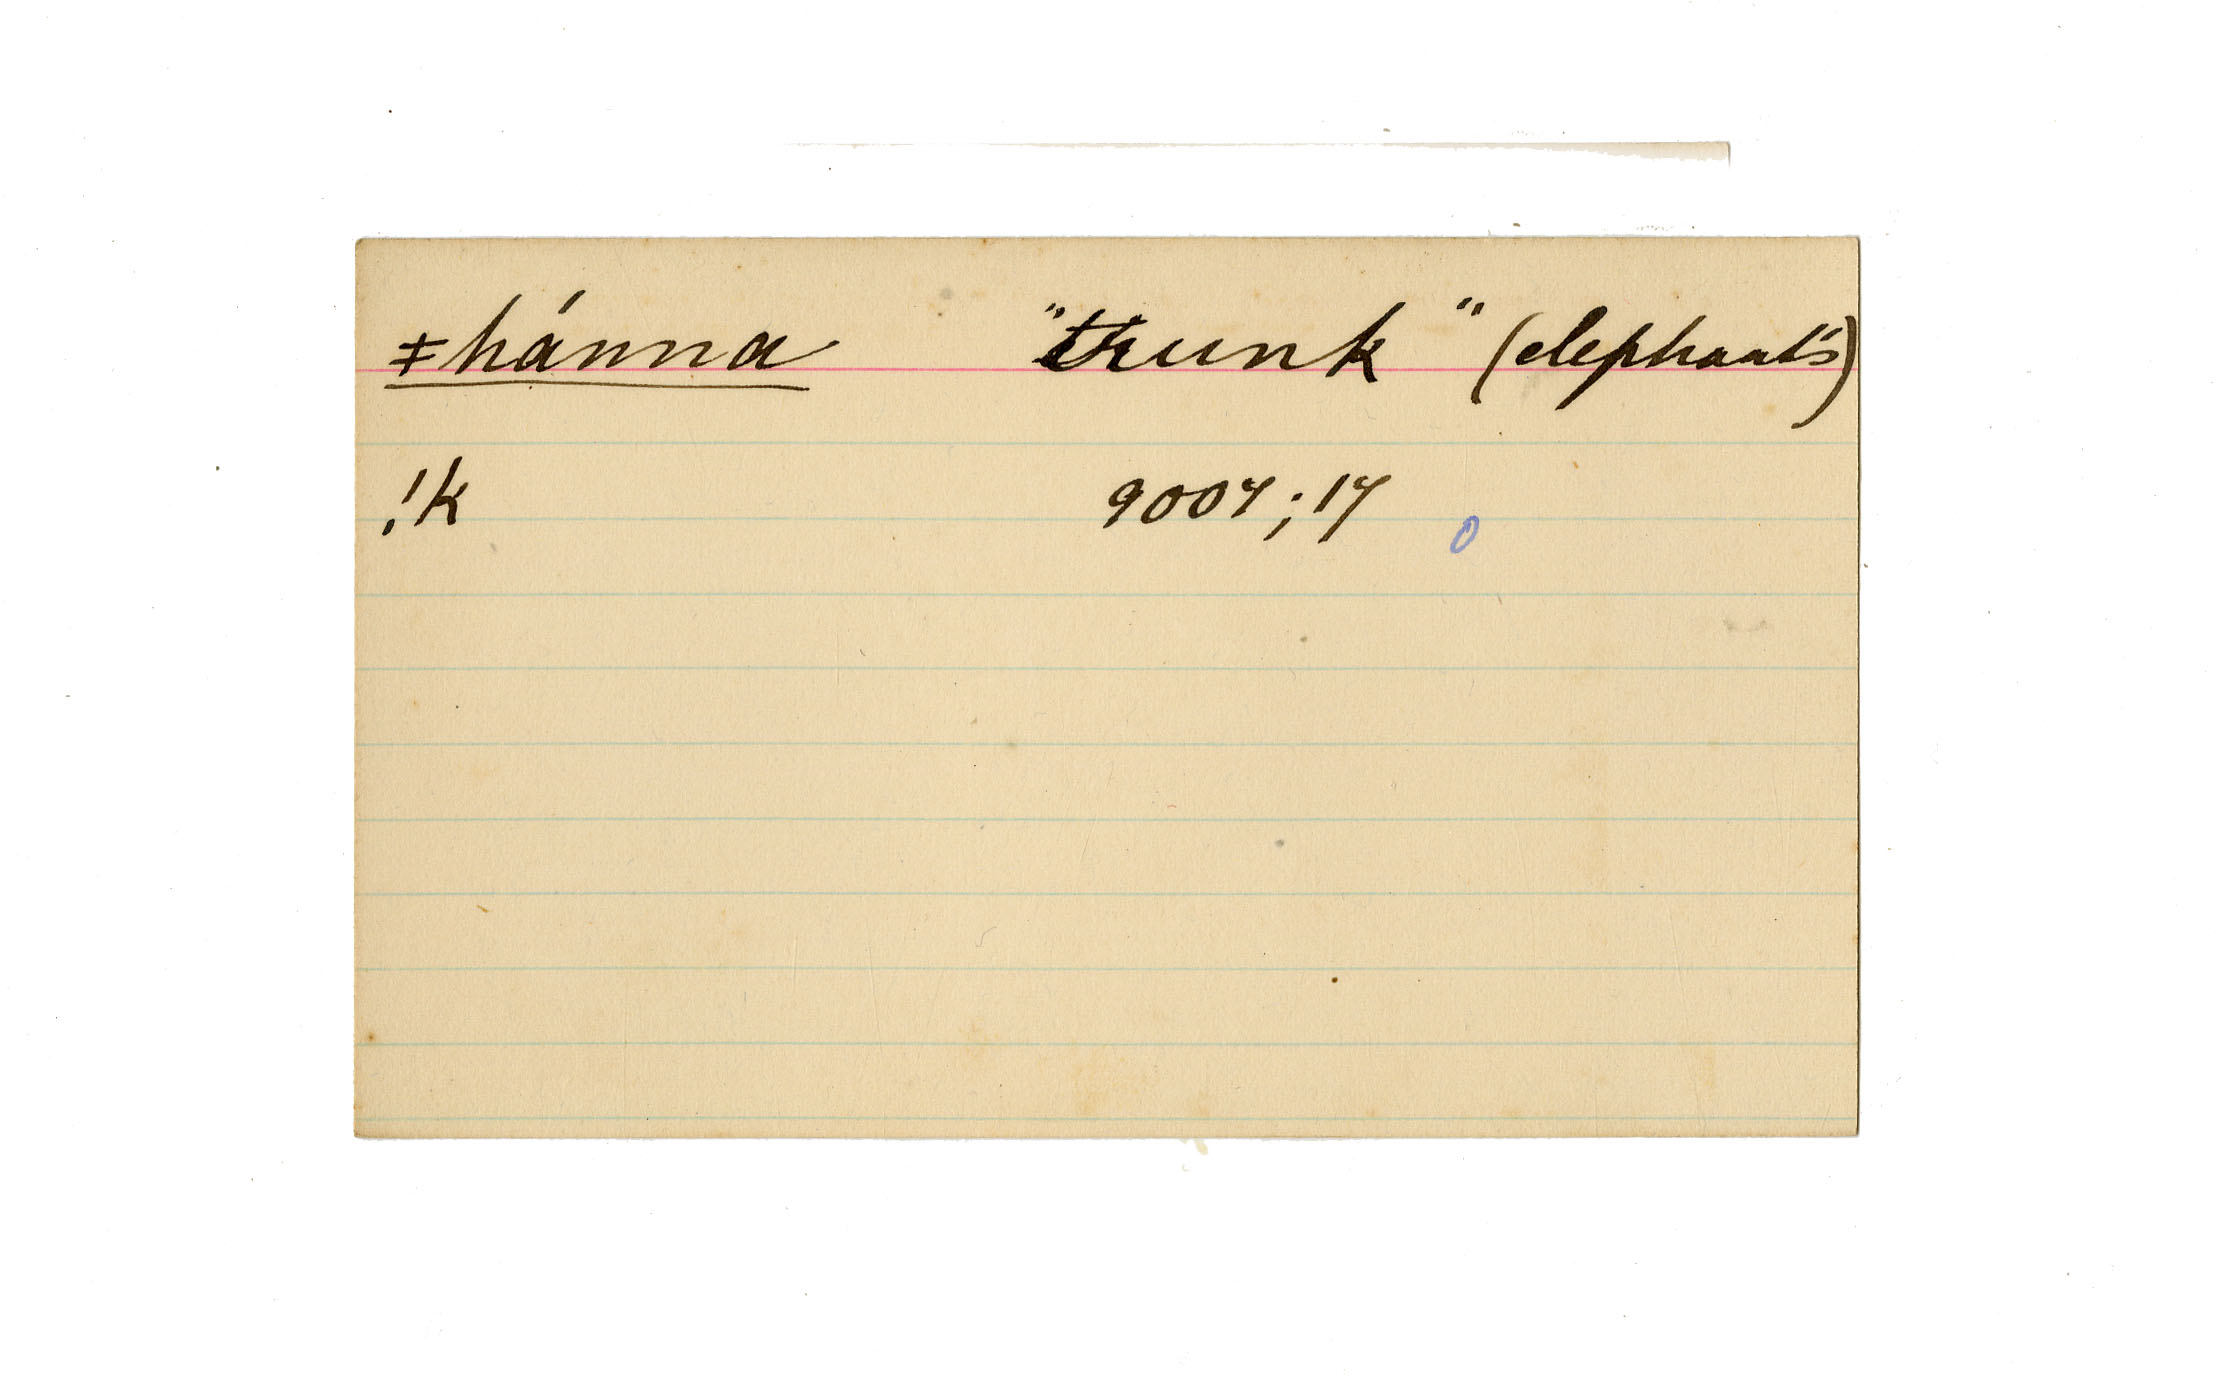 ǂhánna "trunk" (elephant's)
!k 9007; 17 0